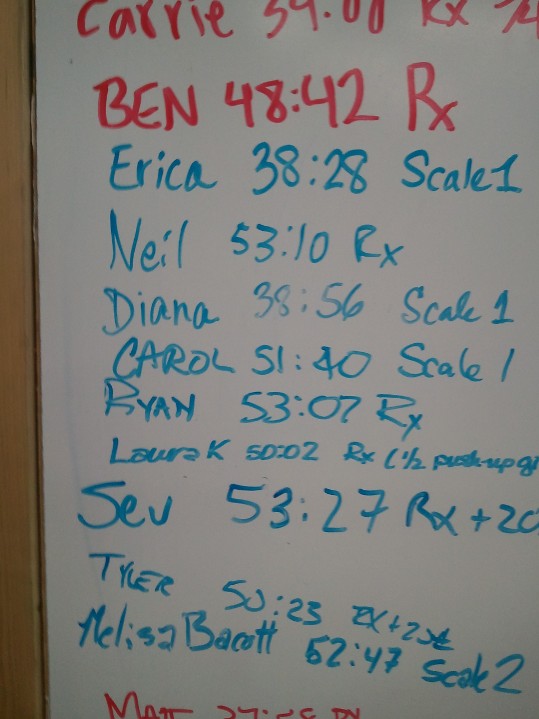 Carrie 59:00 Rx
BEN 48:42 Rx
Erica 38:28 Scale 1
Neil 53:10 Rx
Diana 38:56 Scale 1
CAROL 51:40 Scale 1
RYAN 53:07 Rx
Laura K 50:02 Rx (1/2 push-up
Sev 53:27 Rx + 20
TYLER 50:23 RX + 20#
Melissa Bacott 52:47 Scale 2
MATT